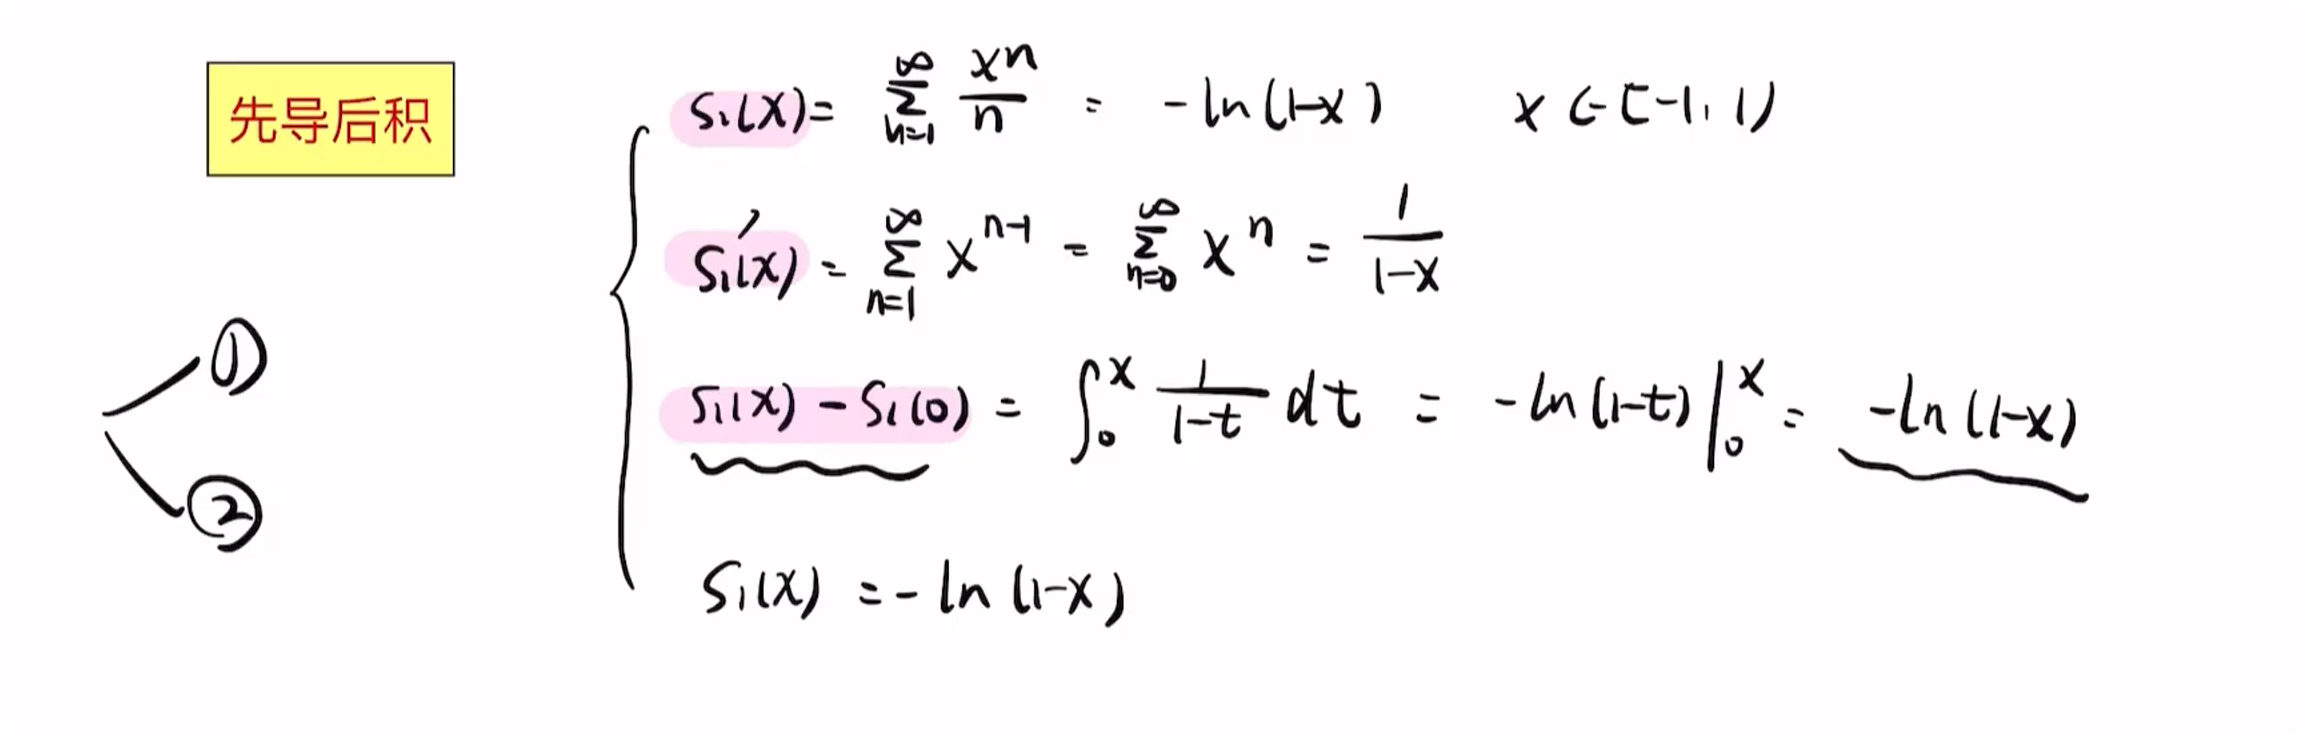 先导后积
S₁(x)= ∑_{n=1}^{∞} xⁿ/n = -ln(1-x) x∈[-1,1)
S₁'(x)= ∑_{n=1}^{∞} x^{n-1} = ∑_{n=0}^{∞} xⁿ = 1/(1-x)
①
S₁(x)-S₁(0) = ∫₀ˣ 1/(1-t) dt = -ln(1-t)|₀ˣ = -ln(1-x)
②
S₁(x) = -ln(1-x)